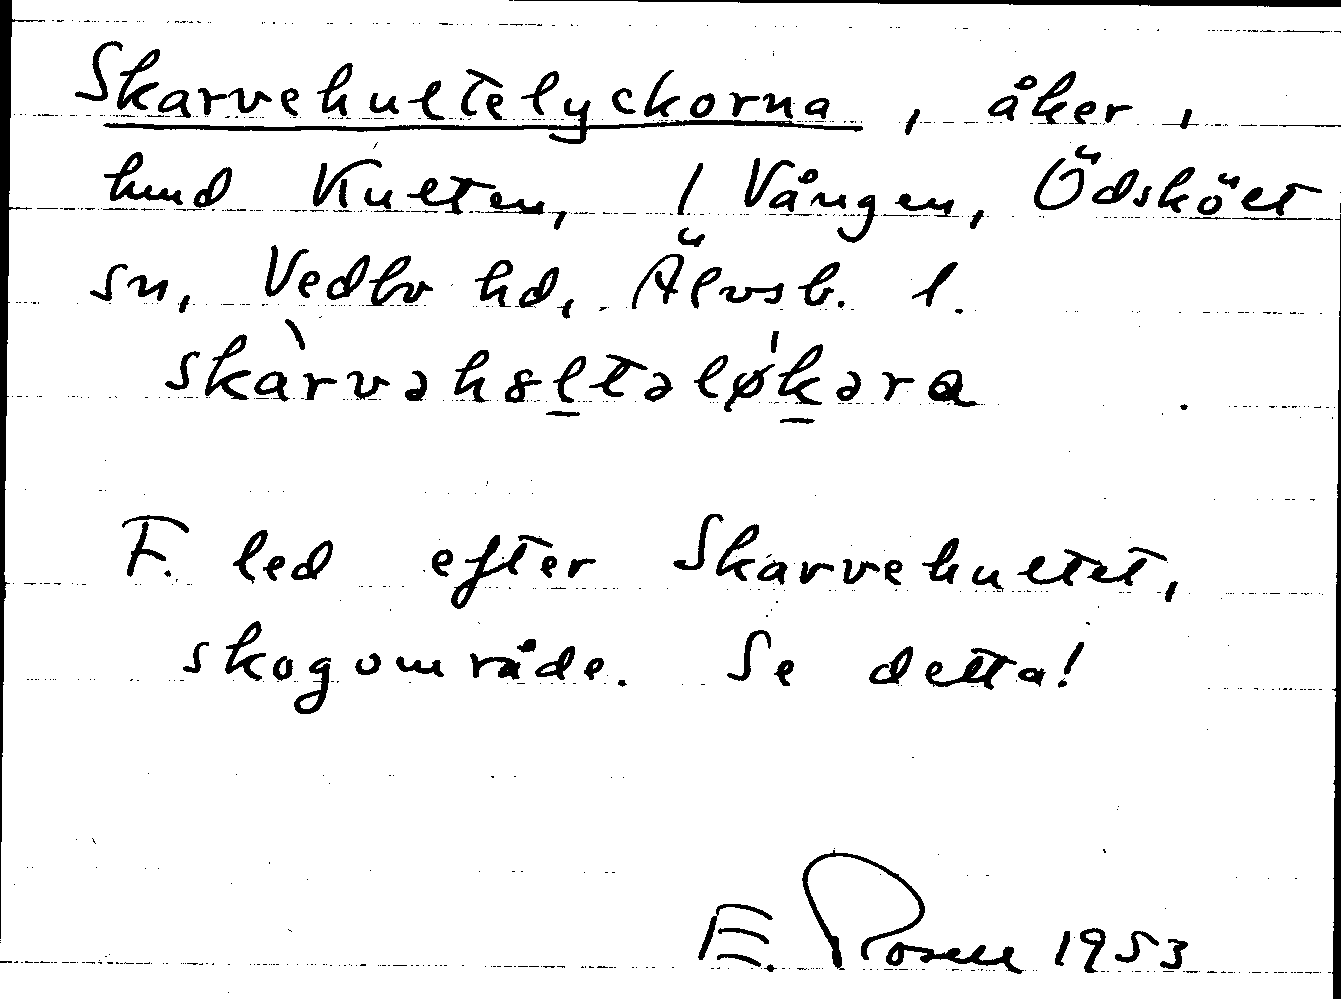 Skarvehultelyckorna, åker,
hmd Kulten, 1 Vången, Ödskölt
sn, Vedbo hd, Älvsb. l.
skàrvəh8ltəløkəra
F. led efter Skarvehultet,
skogområde. Se detta!
E. Rosell 1953